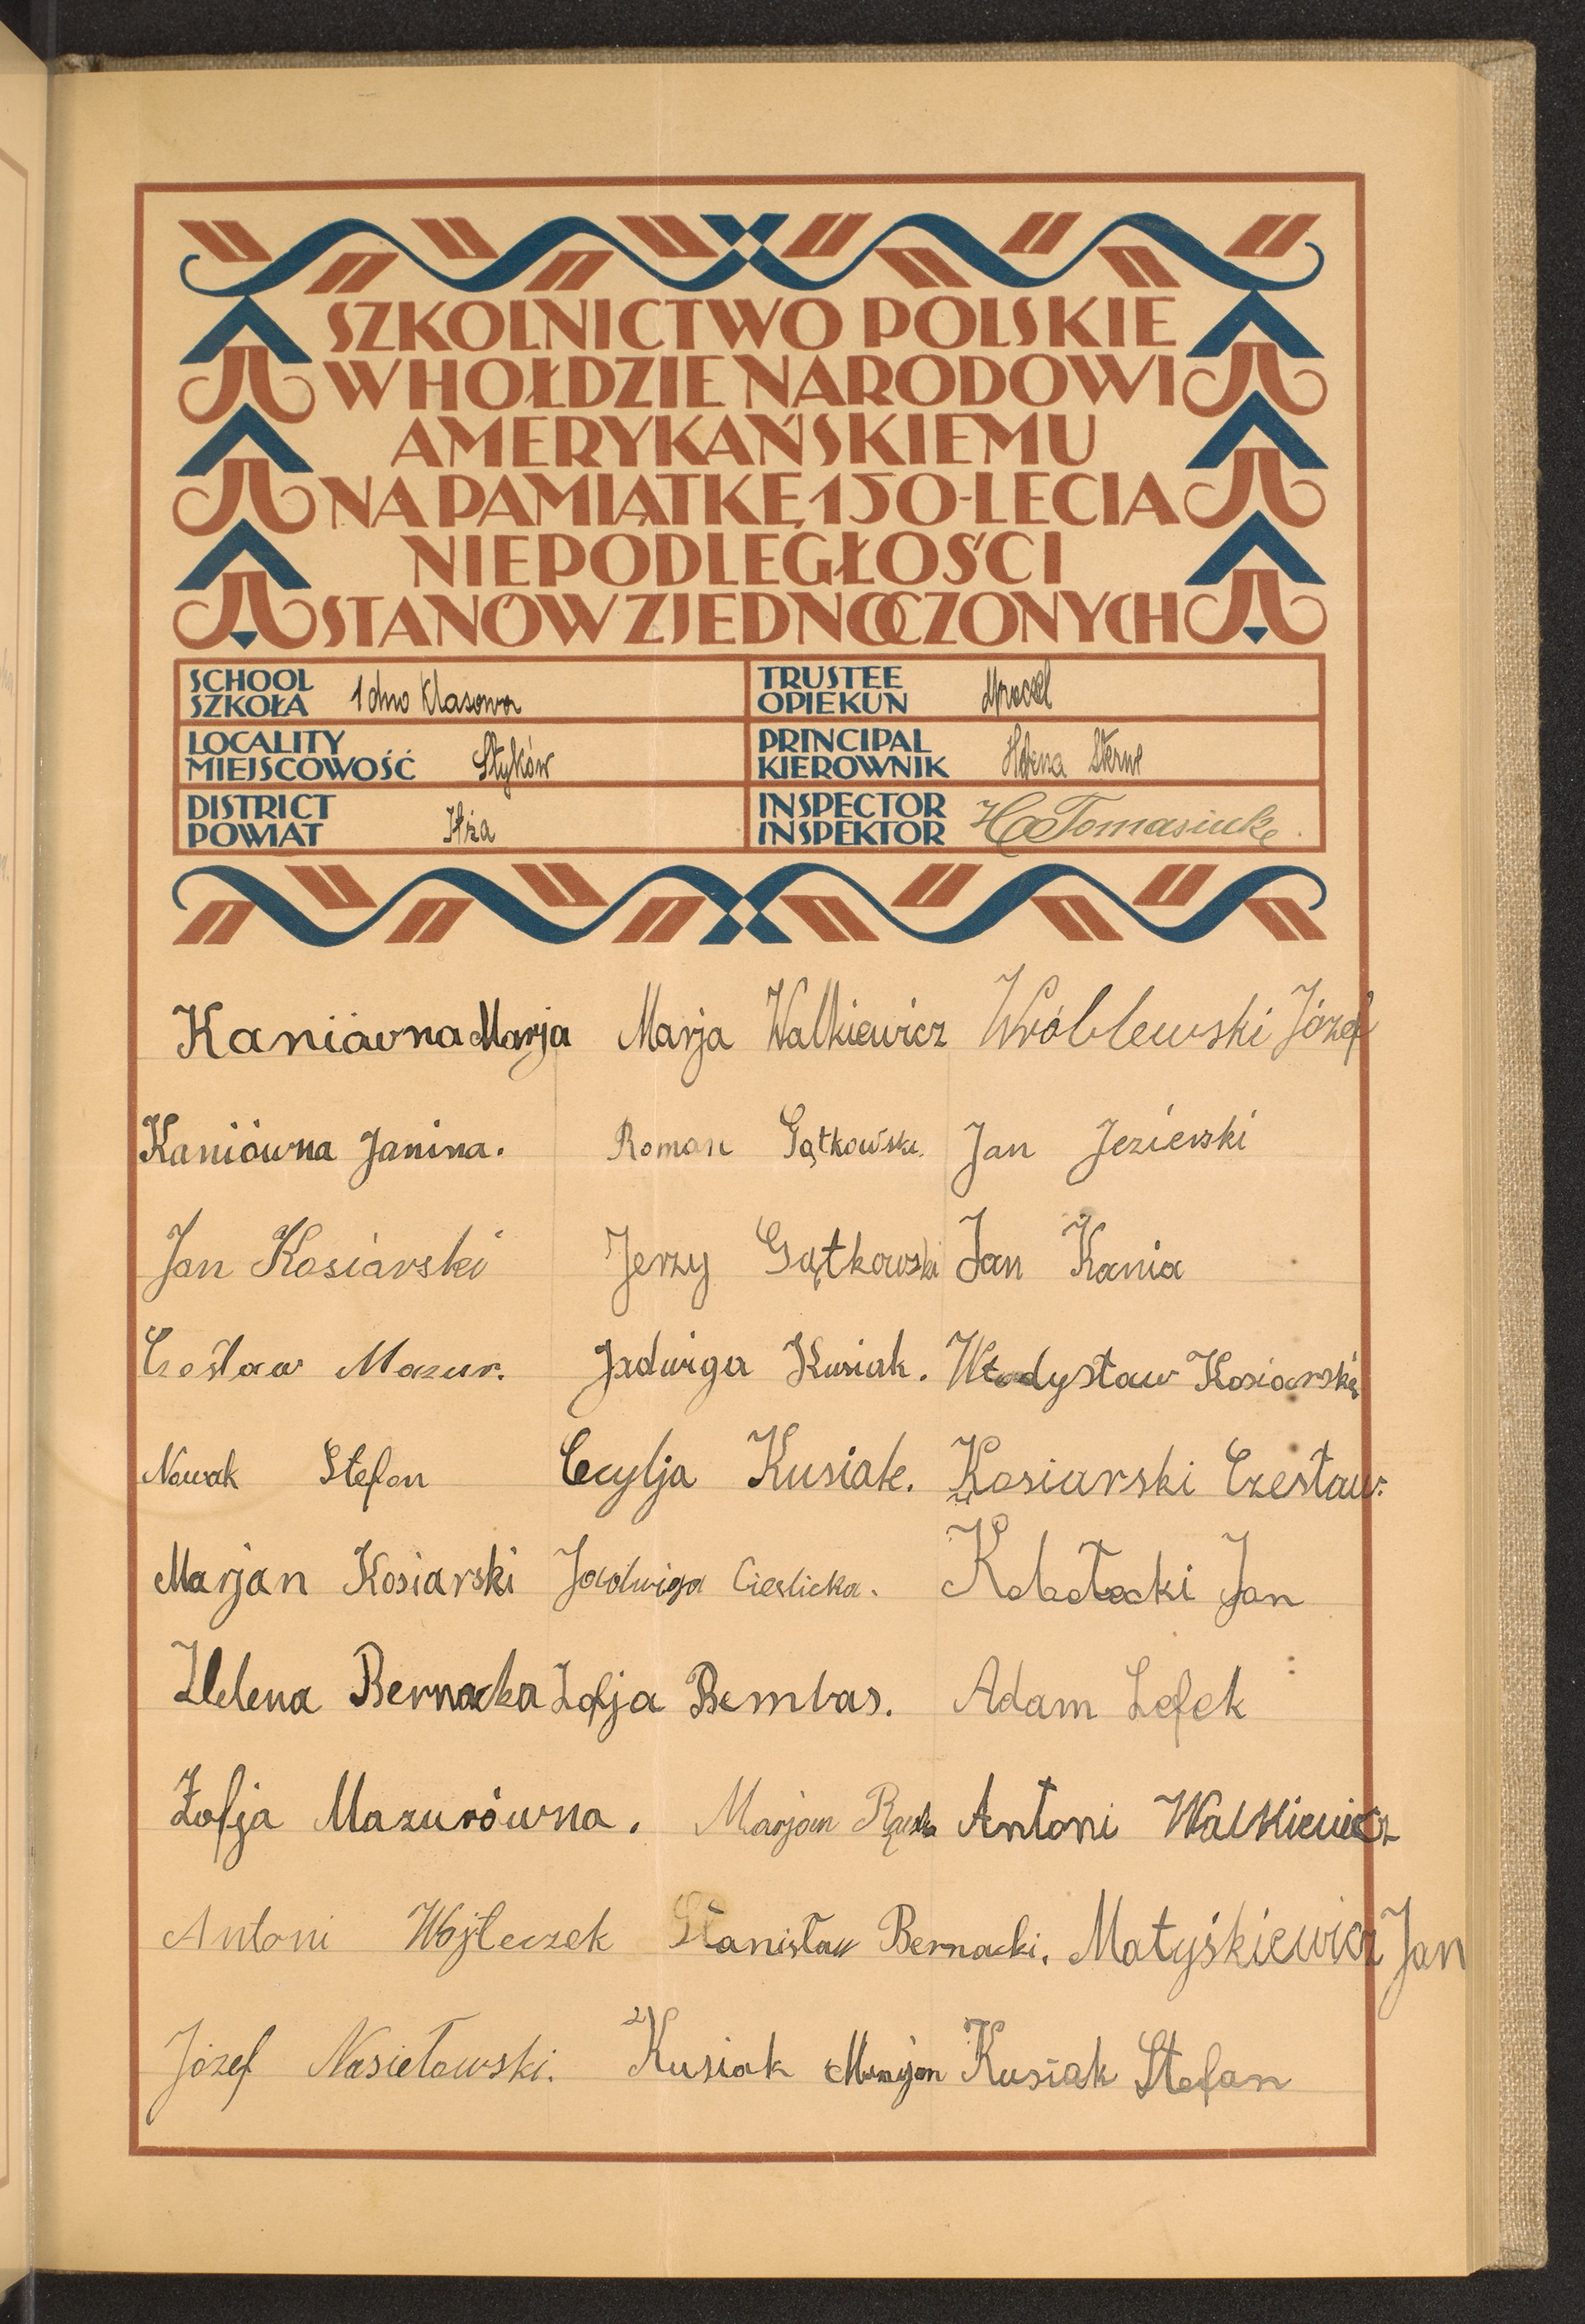 SZKOLNICTWO POLSKIE
W HOŁDZIE NARODOWI
AMERYKAŃSKIEMU
NA PAMIĄTKĘ 150-LECIA
NIEPODLEGŁOŚCI
STANÓW ZJEDNOCZONYCH
SCHOOL
SZKOŁA 1 dno Klasowa
TRUSTEE
OPIEKUN
LOCALITY
MIEJSCOWOŚĆ Styków
PRINCIPAL
KIEROWNIK Helena
DISTRICT
POWIAT Iłża
INSPECTOR
INSPEKTOR
Kaniówna Marja Marja Walkiewicz Wróblewski Józef
Kaniówna Janina. Roman Gątkowski. Jan Jezierski
Jan Kosiarski Jerzy Gątkowski Jan Kania
Czesław Mazur. Jadwiga Kusiak. Władysław Kosiarski
Nowak Stefan Cecylja Kusiak. Kosiarski Czesław.
Marjan Kosiarski Jadwiga Cieslicka. Kobotocki Jan
Helena Bernacka Zofja Bembas. Adam Lefek
Zofja Mazurówna. Marjan Antoni Walkiewicz
Antoni Wojteczek Stanisław Bernacki. Matyśkiewicz Jan
Józef Nasiełowski. Kusiak Marjan Kusiak Stefan